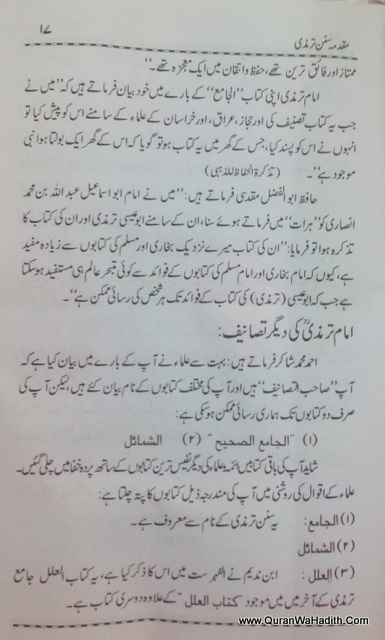 مقدمہ سنن ترمذی ۱۷
ممتاز اور فائق ترین تھے، حفظ و اتقان میں ایک معجزہ تھے۔“
امام ترمذی اپنی کتاب ”الجامع“ کے بارے میں خود بیان فرماتے ہیں کہ ”میں نے
جب یہ کتاب تصنیف کی اور حجاز، عراق، اور خراسان کے علماء کے سامنے اس کو پیش کیا تو
انہوں نے اس کو پسند کیا، جس کے گھر میں یہ کتاب ہو تو گویا کہ اس کے گھر ایک بولتا ہوا نبی
موجود ہے“۔ (تذکرۃ الحفاظ للذہبی)
حافظ ابو الفضل مقدسی فرماتے ہیں: ”میں نے امام ابو اسماعیل عبداللہ بن محمد
انصاری کو ”ہرات“ میں فرماتے ہوئے سنا، ان کے سامنے ابو عیسی ترمذی اور ان کی کتاب کا
تذکرہ ہوا تو فرمایا: ”ان کی کتاب میرے نزدیک بخاری اور مسلم کی کتابوں سے زیادہ مفید
ہے، کیوں کہ امام بخاری اور امام مسلم کی کتابوں کے فوائد سے کوئی تبحر عالم ہی مستفید ہو سکتا
ہے جب کہ ابو عیسی (ترمذی) کی کتاب کے فوائد تک ہر شخص کی رسائی ممکن ہے“۔
امام ترمذیؒ کی دیگر تصانیف:
احمد محمد شاکر فرماتے ہیں: بہت سے علماء نے آپ کے بارے میں بیان کیا ہے کہ
آپ ”صاحب التصانیف“ ہیں اور آپ کی مختلف کتابوں کے نام بیان کئے ہیں، لیکن آپ کی
صرف دو کتابوں تک ہماری رسائی ممکن ہو سکی ہے:
(۱) ”الجامع الصحیح“ (۲) الشمائل
شاید آپ کی باقی کتابیں ائمہ علماء کی دیگر نفیس ترین کتابوں کے ساتھ پردہ خفا میں چلی گئیں۔
علماء کے اقوال کی روشنی میں آپ کی مندرجہ ذیل کتابوں کا پتہ چلتا ہے:
(۱) الجامع: یہ سنن ترمذی کے نام سے معروف ہے۔
(۲) الشمائل
(۳) العلل: ابن ندیم نے الفہرست میں اس کا ذکر کیا ہے، یہ کتاب العلل جامع
ترمذی کے آخر میں میں موجود ”کتاب العلل“ کے علاوہ دوسری کتاب ہے۔
www.QuranWaHadith.Com